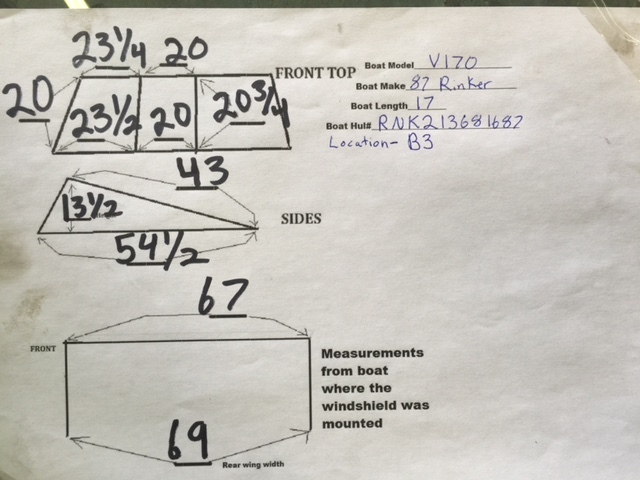 23 1/4 20
FRONT TOP
20
23 1/2 20 20 3/4
Boat Model V170
Boat Make 87 Rinker
Boat Length 17
Boat Hul# RNK213681687
Location- B3
43
13 1/2
SIDES
54 1/2
67
FRONT
Measurements
from boat
where the
windshield was
mounted
69
Rear wing width